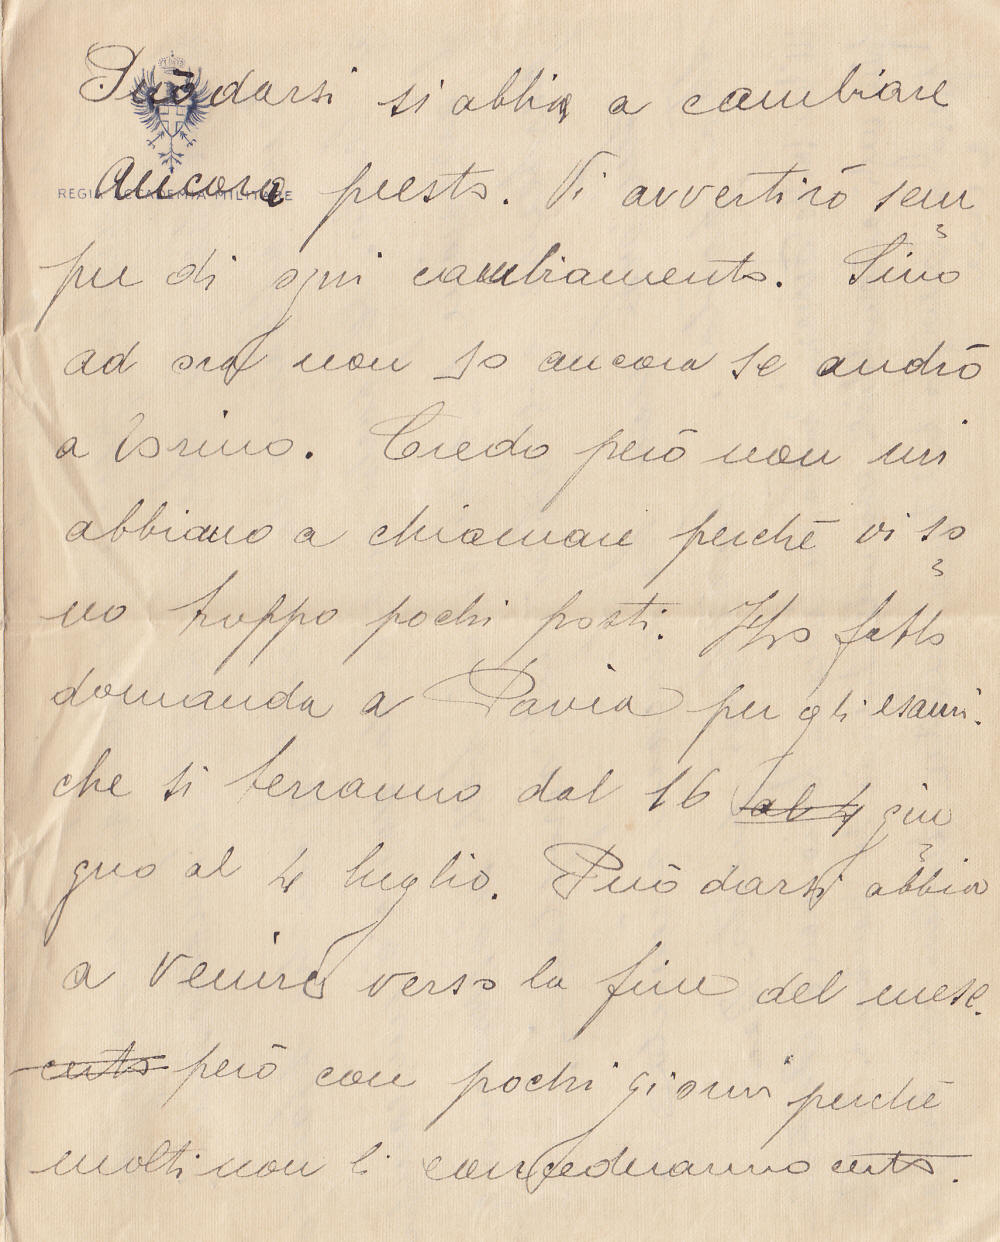 REGIA ACCADEMIA MILITARE
Può darsi si abbia a cambiare
ancora presto. Vi avvertirò sem
pre di ogni cambiamento. Sino
ad ora non so ancora se andrò
a Torino. Credo però non mi
abbiano a chiamare perchè vi so
no troppo pochi posti. Ho fatto
domanda a Pavia per gli esami.
che si terranno dal 16 al 4 giu
gno al 4 luglio. Può darsi abbia
a venire verso la fine del mese.
certo però con pochi giorni perchè
molti non li concederanno certo.